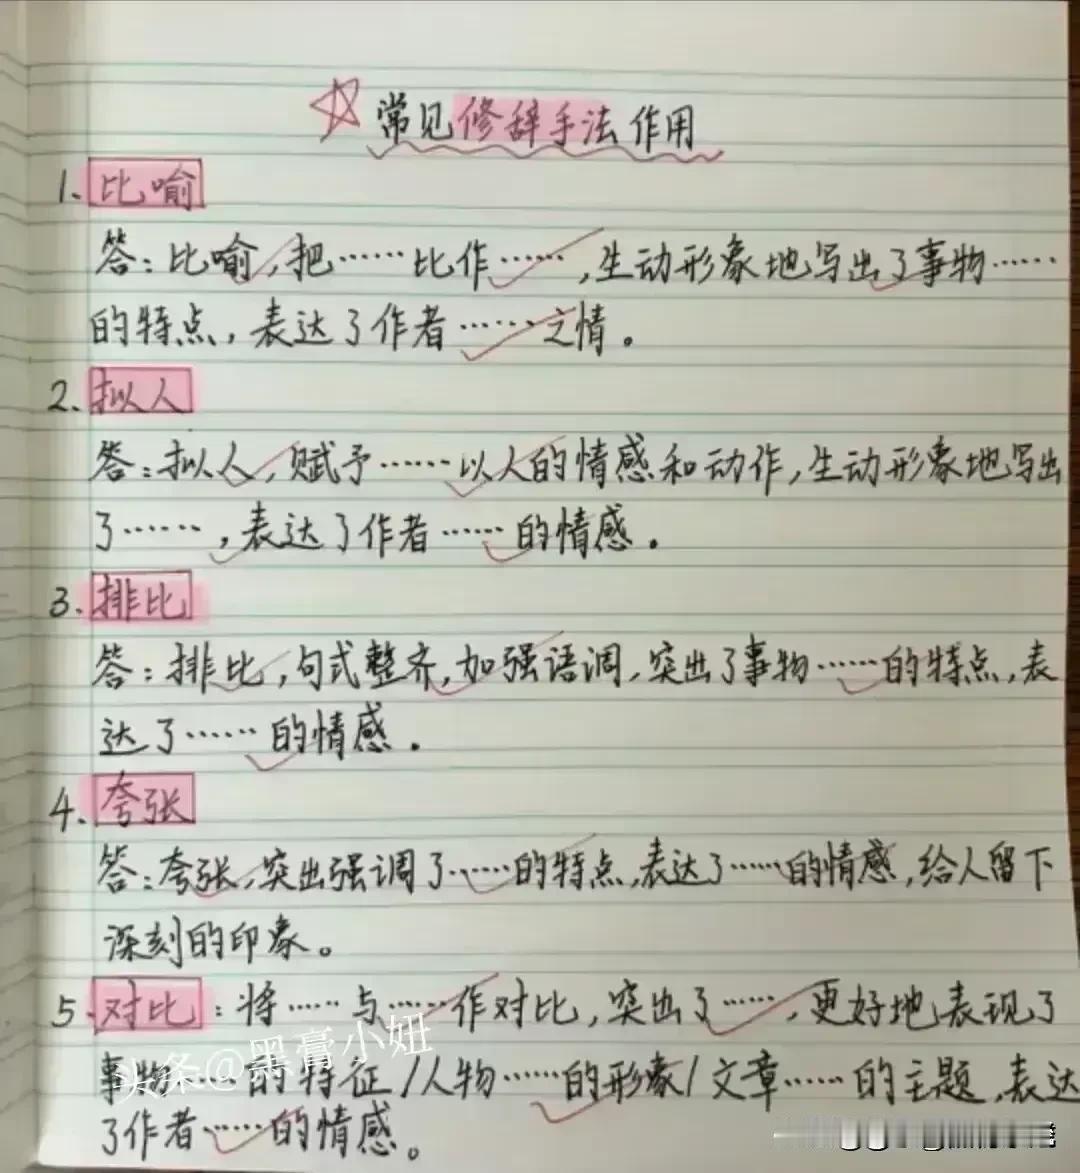 常见修辞手法作用
1、比喻
答：比喻，把……比作……，生动形象地写出了事物……
的特点，表达了作者……之情。
2、拟人
答：拟人，赋予……以人的情感和动作，生动形象地写出
了……，表达了作者……的情感。
3、排比
答：排比，句式整齐，加强语调，突出了事物……的特点，表
达了……的情感。
4、夸张
答：夸张，突出强调了……的特点，表达了……的情感，给人留下
深刻的印象。
5、对比：将……与……作对比，突出了……，更好地表现了
事物……的特征/人物……的形象/文章……的主题，表达
了作者……的情感。
头条@黑膏小妞